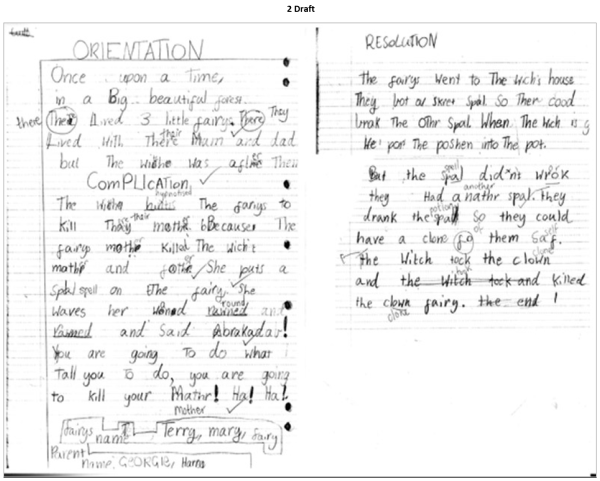 2 Draft
ORIENTATION
Once upon a Time,
in a Big beautiful forest.
there Ther Lived 3 little fairys. There They
their
Lived with There Mam and dad
but The was after Them
COMPLICATION
hypnotised
The The fairys to
their
kill Thay mother beBecause The
fairys mother killed The witch's
mother and She puts a
Spal spell on The fairy. She
round
waves her wand rawned and
rawned and Said Abrakadav!
You are going To do what I
Tall you To do, you are going
to kill your Mathr! Ha! Ha!
mother
fairys name Terry, mary, fairy
Parent
name, GEORGIE, Harris
RESOLUTION
The fairys Went to The wich's house
They bot a Spal So Ther cood
brak The Othr Spal When The Wich is
We' por The poshen into The pot.
spell
But the spal did'n's wrok
another
they Had anathr spal. they
potion
drank the spal So they could
of self
have a clone fo them Saf.
the Witch tock the clown
clone
took
and the witch tock and killed
the clown fairy. the end !
clone